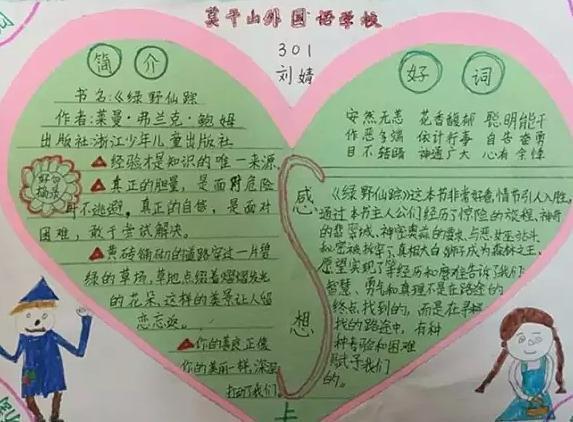 莫干山外国语学校
301
刘婧
简介
书名:《绿野仙踪
作者:莱曼·弗兰克·鲍姆
出版社:浙江少年儿童出版社
好句摘录
经验才是知识的唯一来源
真正的胆量，是面对危险
时不逃避，真正的自信，是面对
困难，敢于尝试解决。
黄砖铺砌的道路穿过一片碧
绿的草场，草地点缀着熠熠发光
的花朵，这样的美景让人留
恋忘返。
你的善良，正像
你的美丽一样，深深
打动了我们。
好词
安然无恙 花香馥郁 聪明能干
作恶多端 依计行事 自告奋勇
目不转睛 神通广大 心有余悸
感想
《绿野仙踪》这本书非常好看，情节引人入胜。
通过本书主人公们经历了惊险的旅程，神奇
的翡翠城，神密
真相大白狮子成为森林之王，
愿望实现了
经历和磨难告诉了我们：
智慧、勇气和真理不是在路途的
终点找到的，而是在寻
找的路途中，有种
种考验和困难
赋予我们
的。